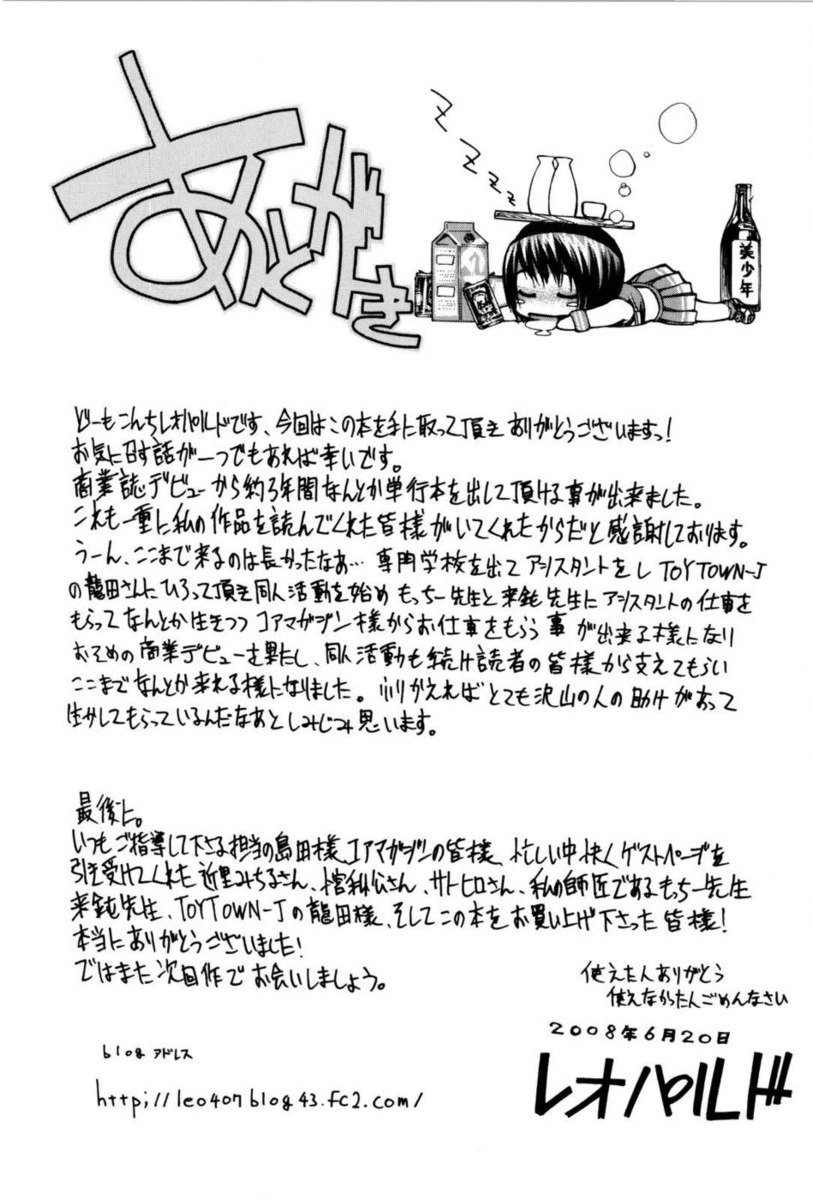 あとがき
美少年
どーもこんちレオパルドです、今回はこの本を手に取って頂きありがとうございますっ!
お気に召す話が一つでもあれば幸いです。
商業誌デビューから約3年間なんとか単行本を出して頂ける事が出来ました。
これも一重に私の作品を読んでくれた皆様がいてくれたからだと感謝しております。
うーん、ここまで来るのは長かったなあ… 専門学校を出てアシスタントをし TOYTOWN-J
の龍田さんにひろって頂き同人活動を始め もっちー先生と来鈍先生にアシスタントの仕事を
もらってなんとか生きつつ コアマガジン様からお仕事をもらう事が出来る様になり
おそめの商業デビューを果たし、同人活動も続け読者の皆様から支えてもらい
ここまでなんとか来れる様になりました。ふりかえればとても沢山の人の助けがあって
生かしてもらっているんだなあとしみじみ思います。
最後に。
いつもご指導して下さる担当の島田様、コアマガジンの皆様、忙しい中快くゲストページを
引き受けてくれた 近里みちるさん、さん、サトヒロさん、私の師匠であるもっちー先生
来鈍先生、TOYTOWN-Jの龍田様、そしてこの本をお買い上げ下さった皆様!
本当にありがとうございました!
ではまた次回作でお会いしましょう。
使えた人ありがとう
使えなかった人ごめんなさい
2008年6月20日
レオパルド
blog アドレス
http://leo407blog43.fc2.com/